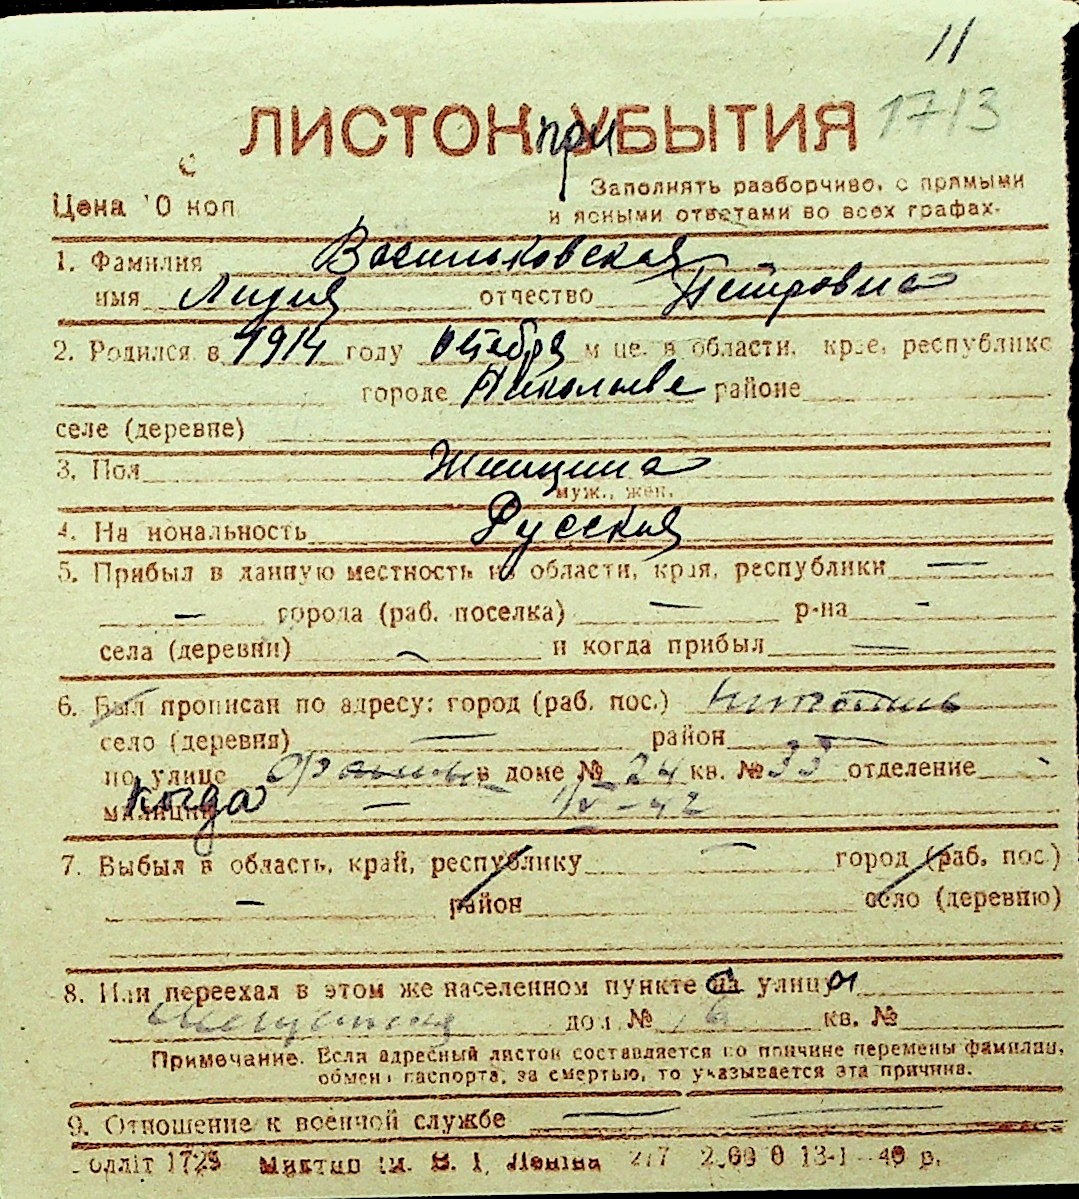 11
ЛИСТОК при УБЫТИЯ 1713
Цена 10 коп
Заполнять разборчиво, с прямыми
и ясными ответами во всех графах.
1. Фамилия Васильковская
имя Лидия отчество Петровна
2. Родился в 1914 году октября м це. в области, крае, республике
городе Николаеве районе
селе (деревне)
3. Пол Женщина
муж., жен.
4. На иональность Русская
5. Прибыл в данную местность из области, края, республики —
— города (раб. поселка) — р-на -
села (деревни) — и когда прибыл —
6. Был прописан по адресу: город (раб. пос.)
село (деревня) — район —
по улице в доме № 24 кв. № 33 отделение -
милиции когда — 1/V-42
7. Выбыл в область, край, республику — город (раб. пос.)
— район село (деревню)
8. Или переехал в этом же населенном пункте с улицы
дом № 16 кв. №
Примечание. Если адресный листок составляется по причине перемены фамилии,
обмена паспорта, за смертью, то указывается эта причина.
9. Отношение к военной службе —
оллiт 1725 iм. В. І. Ленiна 277 2.00 0 13-1 - 40 р.